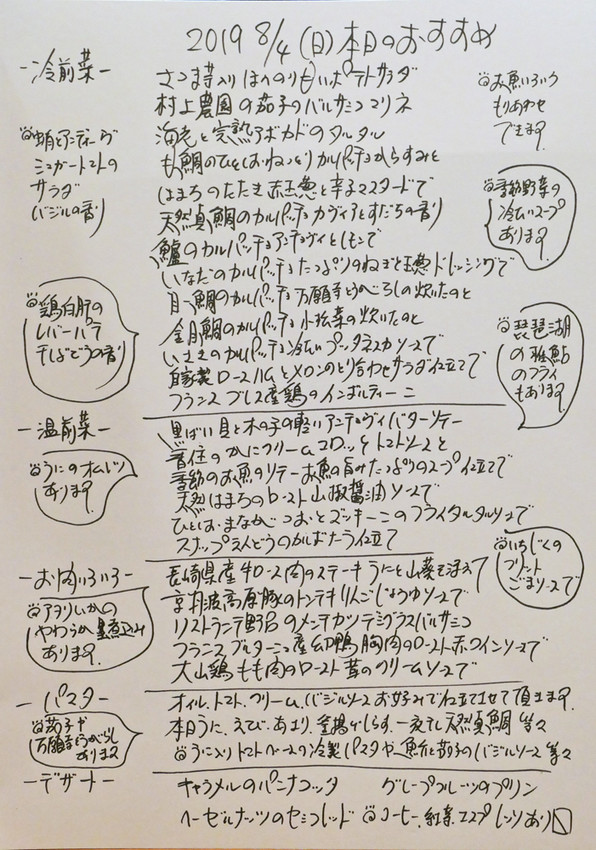 2019 8/4 (日) 本日のおすすめ
－冷前菜－
さつま芋入りほんのり甘いポテトサラダ
村上農園の茄子のバルサミコマリネ
海老と完熟アボカドのタルタル
鯛のひとしおねっとりカルパッチョからすみと
はまちのたたき 赤玉葱と辛子マスタードで
天然真鯛のカルパッチョカヴィアとすだちの香り
鱸のカルパッチョアンチョヴィとレモンで
いなだのカルパッチョたっぷりのねぎと玉葱ドレッシングで
目一鯛のカルパッチョ万願寺とうがらしの炊いたのと
金目鯛のカルパッチョ小松菜の炊いたのと
いさきのカルパッチョ冷たいプッタネスカソースで
自家製ロースハムとメロンのとり合わせサラダ仕立てで
フランスブレス産鶏のインボルティーニ
蛸とアンディーヴ
シュガートマトの
サラダ
バジルの香り
鶏白肝の
レバーパテ
干しぶどうの香り
お魚いろいろ
もりあわせ
できます。
季節野菜の
冷たいスープ
あります。
琵琶湖
の稚鮎
のフライ
もあります。
－温前菜－
黒ばい貝と木の子の軽いアンチョヴィバターソテー
香住のかにクリームコロッケトマトソースと
季節のお魚のソテーお魚の旨みたっぷりのスープ仕立てで
天然はまちのロースト山椒醤油ソースで
ひとしおまながつおとズッキーニのフライタルタルソースで
スナップえんどうのかるぼなーら仕立て
うにのオムレツ
あります。
－お肉いろいろ－
長崎県産牛ロース肉のステーキうにと山葵を添えて
京丹波高原豚のトンテキりんごじょうゆソースで
リストランテ野呂のメンチカツデミグラスバルサミコ
フランスブルターニュ産幼鴨胸肉のロースト赤ワインソースで
大山鶏もも肉のロースト茸のクリームソースで
アオリいかの
やわらか墨煮込み
あります。
いちじくの
フリット
ごまソースで
－パスタ－
オイル、トマト、クリーム、バジルソースお好みで仕立てさせて頂きます。
本日うに、えび、あさり、釜揚げしらす、一夜干し天然真鯛 等々
うに入りトマトベースの冷製パスタや魚と茄子のバジルソース 等々
茄子や
万願寺とうがらし
あります
－デザート－
キャラメルのパンナコッタ グレープフルーツのプリン
ヘーゼルナッツのセミフレッド コーヒー、紅茶、エスプレッソあり